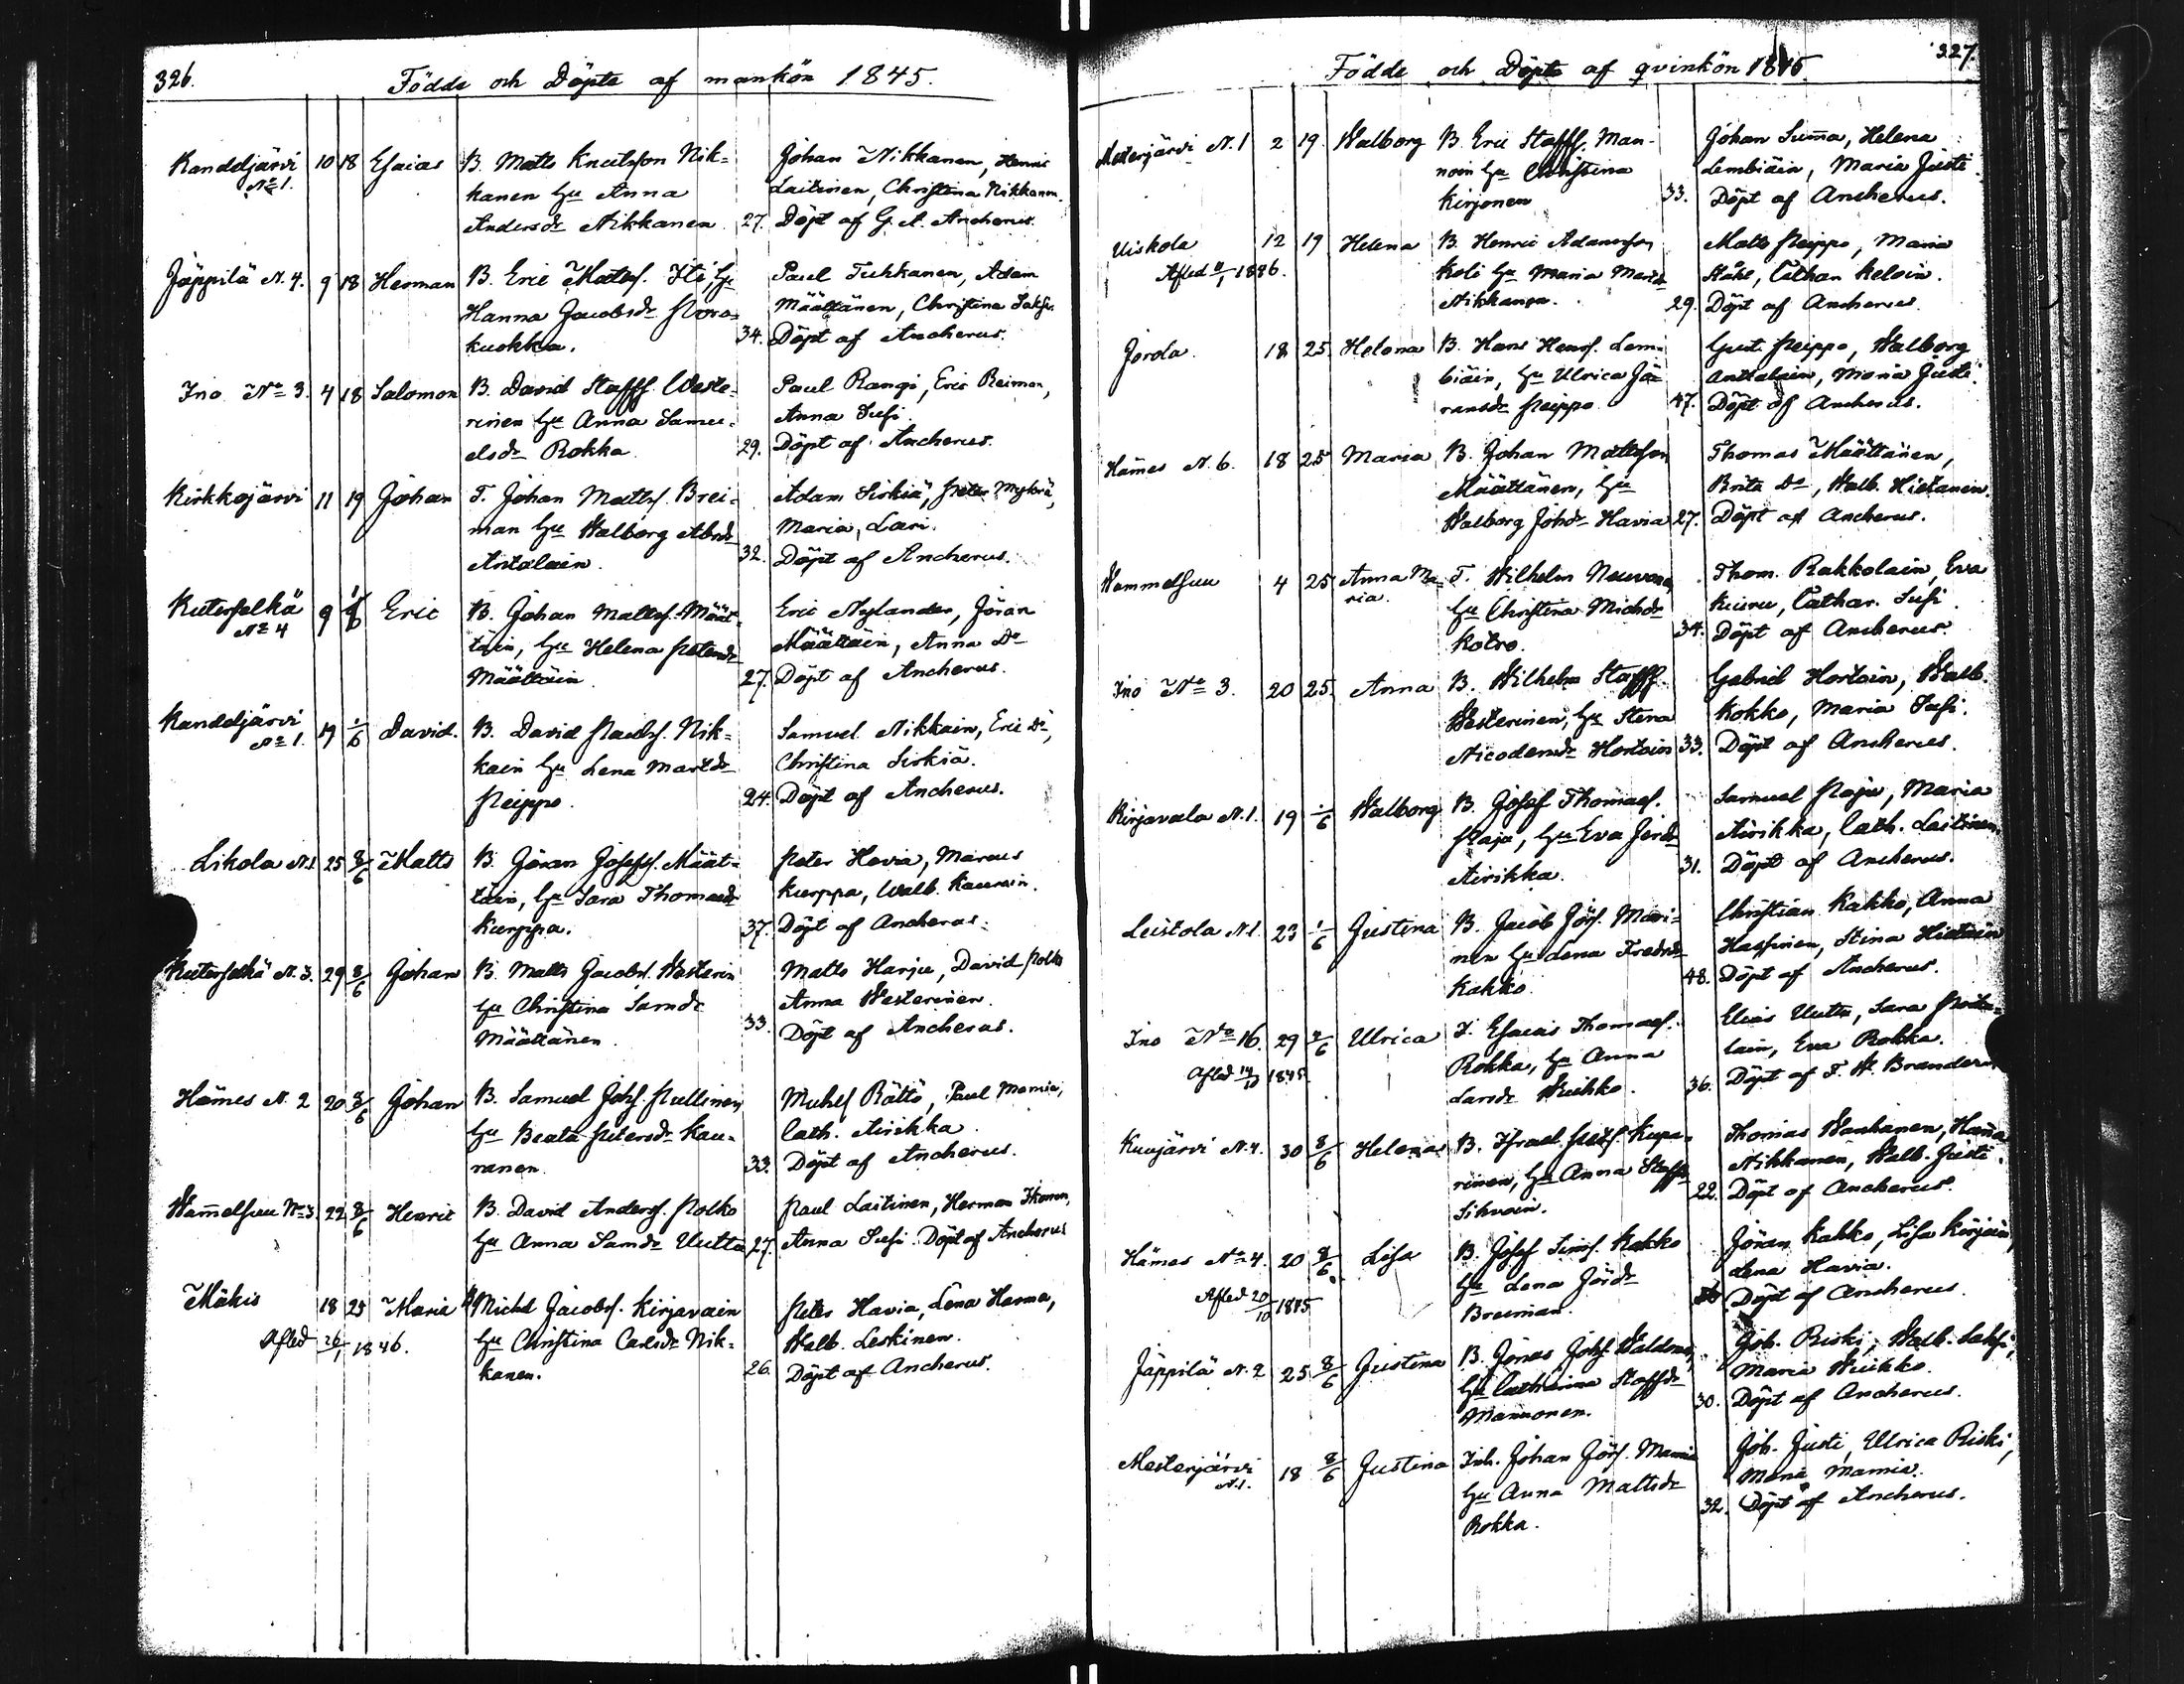 326.
Födde och Döpte af mankön 1845.
Kanneljärvi 10 18 Esaias B. Matts Knutsson Nik= Johan Nikkanen, Henric
N:o 1. kanen hu Anna Laitinen, Christina Nikkanen.
Andersdr Nikkanen 27. Döpt af G. A. Ancherus.
Jäppilä N. 4. 9 18 Herman B. Eric Mattss. Hu Paul Tuhkanen, Adam
Hanna Jacobsdr Määttänen, Christina
kuokka. 34. Döpt af Ancherus.
Ino N:o 3. 4 18 Salomon B. David Staffss. Weste= Paul Rangi, Eric Reiman,
rinen hu Anna Samu= Anna Susi.
elsdr Rokka 29. Döpt af Ancherus.
Kirkkojärvi 11 19 Johan T. Johan Mattss. Brei= Adam Siskiä, Peter
man hu Walborg Maria, Lari.
Antalain. 32. Döpt af Ancherus.
Kuterselkä 9 1/6 Eric B. Johan Mattss. Määt= Eric Nylander, Jöran
N:o 4 täin, hu Helena Petersdr Määttäin, Anna Do
Määttäin 27. Döpt af Ancherus.
Kanneljärvi 19 1/6 David. B. David Paulss. Nik= Samuel Nikkain, Eric Do,
N:o 1. kain hu Lena Martdr Christina Siskiä.
Peippo. 24. Döpt af Ancherus.
Likola N.1 25 8/6 Matts B. Göran Josefss. Määt= Peter Havia, Marcus
täin, hu Sara Thomasdr Kurppa, Walb. Kaurain.
Kurppa. 37. Döpt af Ancherus.
Kuterselkä N. 3. 29 8/6 Johan B. Matts Jacobss. Westerin Matts Harju, David Polko
hu Christina Samdr Anna Westerinen.
Määttänen 33. Döpt af Ancherus.
Hämes N. 2 20 8/6 Johan B. Samuel Johss. Pullinen Michel Rättö, Paul Mamia,
hu Beata Petersdr Kau= Cath. Airikka.
ranen. 33. Döpt af Ancherus.
Wammelsuu No 3. 22 8/6 Henric B. David Anderss. Polko Paul Laitinen, Herman Ikonen,
hu Anna Samdr Uutta 27. Anna Susi. Döpt af Ancherus
Mäkis 18 25 Maria B. Michel Jacobss. Kirjavain Peter Havia, Lena Hanna,
Afled 26/1 1846. hu Christina Carlsdr Nik= Walb. Leskinen.
kanen. 26. Döpt af Ancherus.
327.
Födde och Döpte af qvinkön 1845.
Mesterjärvi N. 1 2 19. Walborg B. Eric Staffss. Man- Johan Summa, Helena
noin hu Christina Lembiäin, Maria Justi.
Kirjonen 33. Döpt af Ancherus.
Uiskola 12 19 Helena B. Henric Adamsson Matts Peippo, Maria
Afled 1846. Koli hu Maria Ståhl, Cathar. Keloin.
Nikkanen. 29. Döpt af Ancherus.
Jorola 18 25. Helena B. Hans Henss. Lem= Gust. Peippo, Walborg
biäin, hu Ulrica Jö= Anttalain, Maria Justi.
ransdr Peippo 47. Döpt af Ancherus.
Hämes N. 6. 18 25 Maria B. Johan Mattsson Thomas Määttänen,
Määttänen, hu Brita Do, Walb. Hietanen.
Walborg Johdr Havia 27. Döpt af Ancherus.
Wammelsuu 4 25 Anna Ma= T. Wilhelm Neuvonen Thom. Rakkolain, Eva
ria. hu Christina Michdr Kuuru, Cathar. Susi.
Kotro. 34. Döpt af Ancherus.
Ino N:o 3. 20 25. Anna B. Wilhelm Staffss. Gabriel Hortain, Walb.
Westerinen, hu Stena Kokko, Maria Susi.
Nicodemdr Hortain 33. Döpt af Ancherus.
Kirjavala N. 1. 19 1/6 Walborg B. Josef Thomass. Samuel Paju, Maria
Paju, hu Eva Airikka, Cath. Laitinen.
Airikka. 31. Döpt af Ancherus.
Leistola N.1 23 1/6 Justina B. Jacob Jörs. Mari= Christian Kakko, Anna
nen hu Lena Fredrdr Hassinen, Stina Hietain
Kakko. 48. Döpt af Ancherus.
Ino N:o 16. 29 Ulrica T. Esaias Thomass. Elias Uutta, Sara
Afled 1845. Rokka, hu Anna lain, Eva Rokka.
Larsdr Wuikko. 36. Döpt af F. W. Brander
Kuujärvi N. 4. 30 8/6 Helena B. Israel Kupa= Thomas Wanhanen, Hanna
rinen, hu Anna Staffdr Nikkanen, Walb. Justi.
Sihvoin. 22. Döpt af Ancherus.
Hämes N:o 4. 20 8/6. Lisa B. Josef Simss. Kakko Jöran Kakko, Lisa Kirjain,
Afled 20/10 1845 hu Lena Jördr Lena Havia.
Breiman. Döpt af Ancherus.
Jäppilä N. 2 25 8/6 Justina B. Jonas Johss. Joh. Riski, Walb.
hu Catharina Staffdr Maria Wuikko.
Mannonen. 30. Döpt af Ancherus.
Mesterjärvi 18 8/6 Justina Inh. Johan Jörs. Mamia Joh. Justi, Ulrica Riski,
N.1. hu Anna Mattsdr Maria Mamia.
Rokka. 32. Döpt af Ancherus.